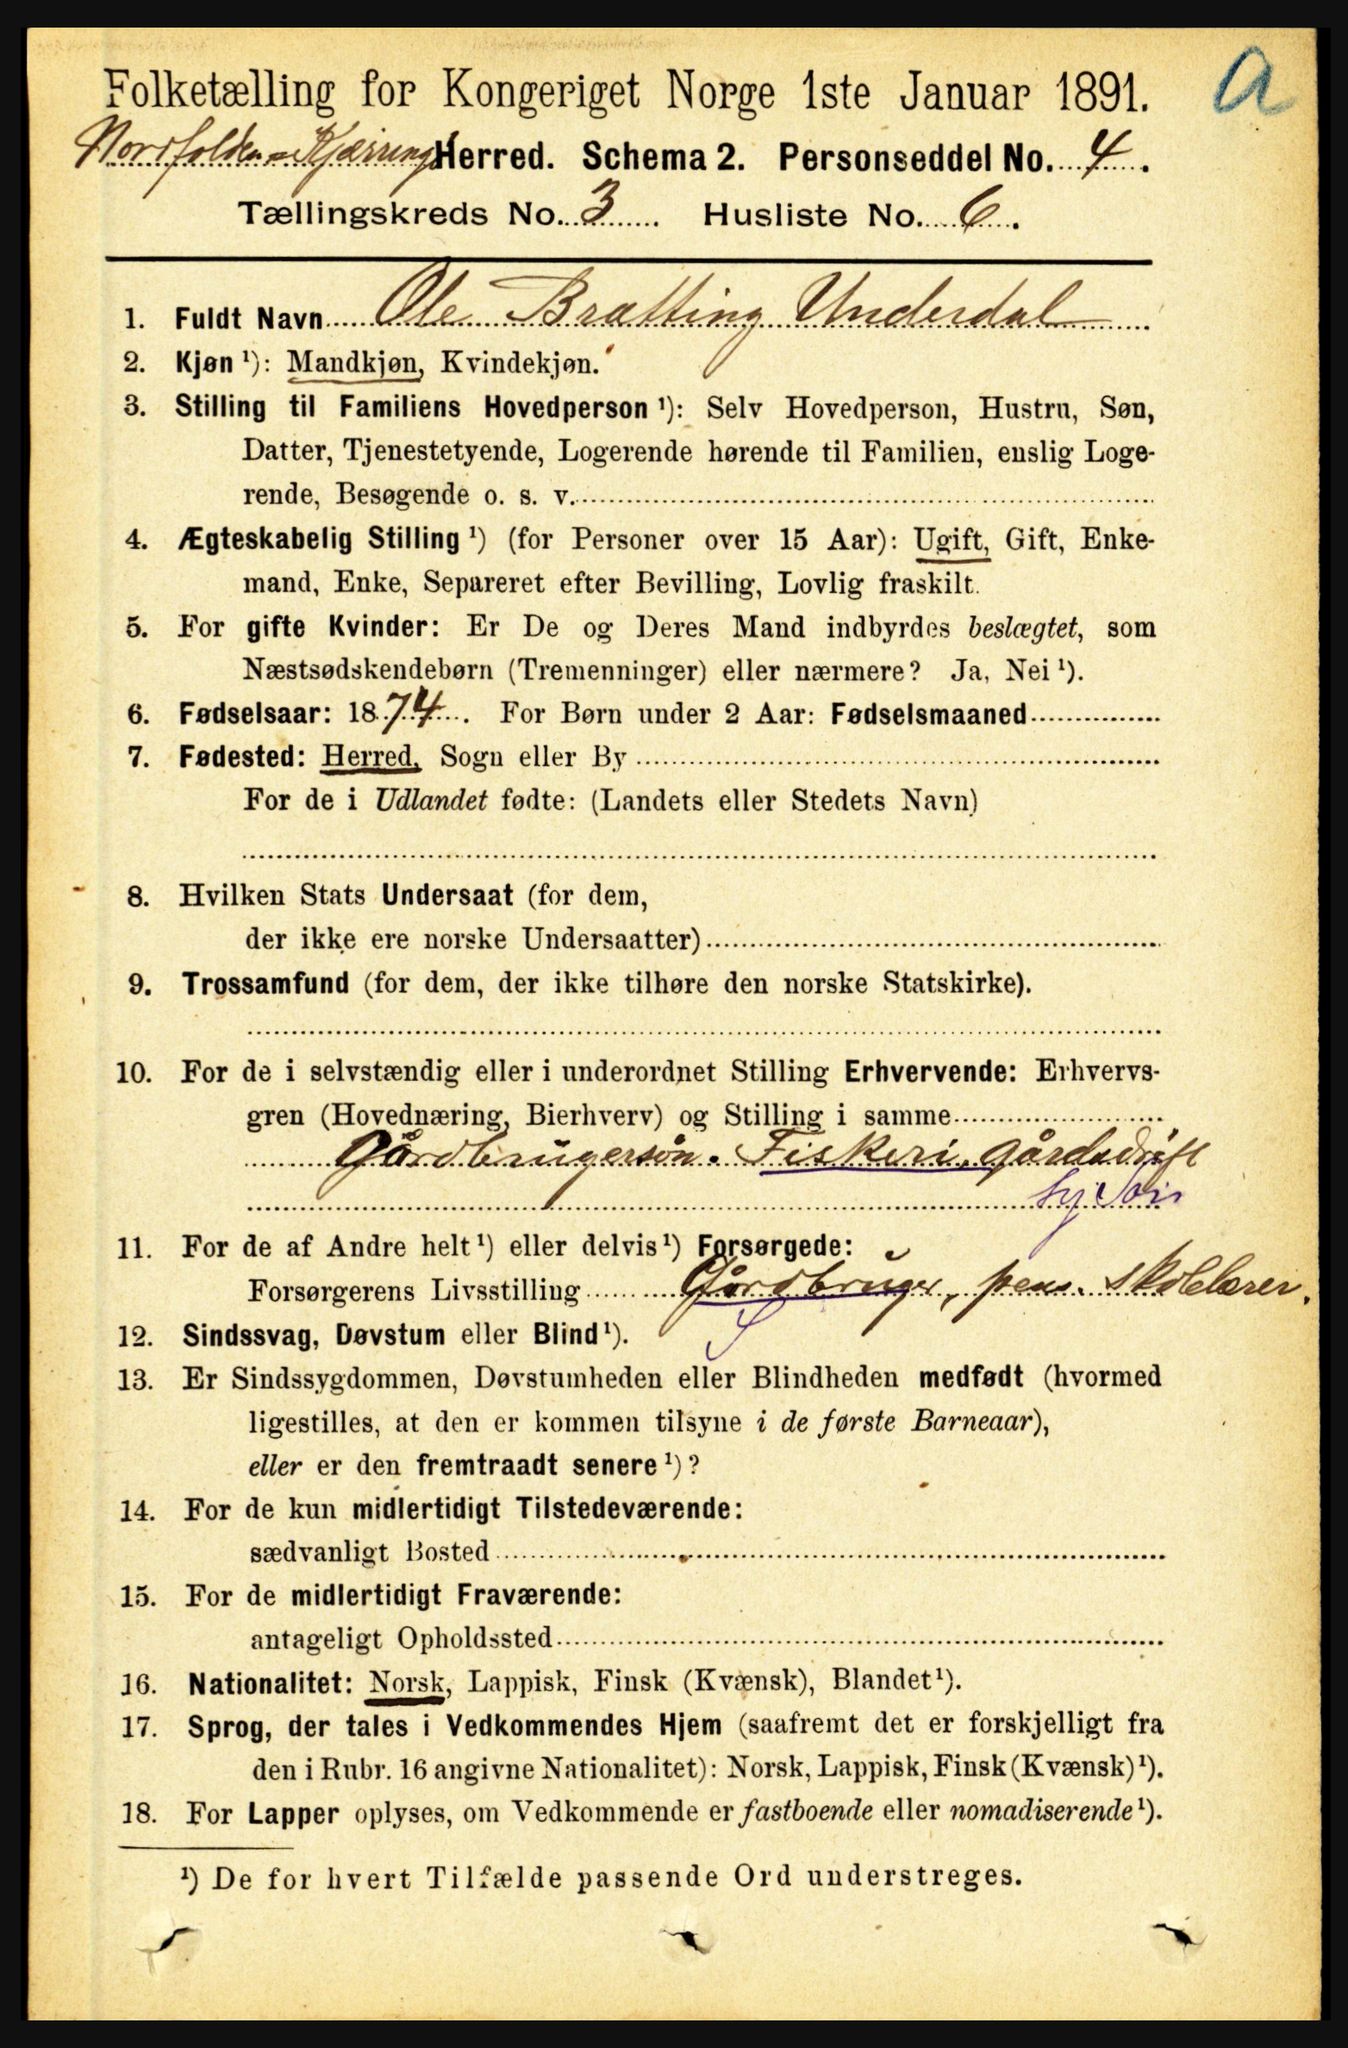 a
Folketælling for Kongeriget Norge 1ste Januar 1891.
Nordfolden-Kjærring Herred. Schema 2. Personseddel No. 4.
Tællingskreds No. 3. Husliste No. 6.
1. Fuldt Navn Ole Bratting Underdal
2. Kjøn ¹): Mandkjøn, Kvindekjøn.
3. Stilling til Familiens Hovedperson ¹): Selv Hovedperson, Hustru, Søn,
Datter, Tjenestetyende, Logerende hørende til Familien, enslig Loge-
rende, Besøgende o. s. v.
4. Ægteskabelig Stilling ¹) (for Personer over 15 Aar): Ugift, Gift, Enke-
mand, Enke, Separeret efter Bevilling, Lovlig fraskilt.
5. For gifte Kvinder: Er De og Deres Mand indbyrdes beslægtet, som
Næstsødskendebørn (Tremenninger) eller nærmere? Ja, Nei ¹).
6. Fødselsaar: 1874. For Børn under 2 Aar: Fødselsmaaned
7. Fødested: Herred, Sogn eller By
For de i Udlandet fødte: (Landets eller Stedets Navn)
8. Hvilken Stats Undersaat (for dem,
der ikke ere norske Undersaatter)
9. Trossamfund (for dem, der ikke tilhøre den norske Statskirke).
10. For de i selvstændig eller i underordnet Stilling Erhvervende: Erhvervs-
gren (Hovednæring, Bierhverv) og Stilling i samme
Gårdbrugersøn. Fiskeri, gårdsdrift
11. For de af Andre helt ¹) eller delvis ¹) Forsørgede:
Forsørgerens Livsstilling Gårdbruger, pens. skolelærer.
12. Sindssvag, Døvstum eller Blind ¹). S
13. Er Sindssygdommen, Døvstumheden eller Blindheden medfødt (hvormed
ligestilles, at den er kommen tilsyne i de første Barneaar),
eller er den fremtraadt senere ¹)?
14. For de kun midlertidigt Tilstedeværende:
sædvanligt Bosted
15. For de midlertidigt Fraværende:
antageligt Opholdssted
16. Nationalitet: Norsk, Lappisk, Finsk (Kvænsk), Blandet ¹).
17. Sprog, der tales i Vedkommendes Hjem (saafremt det er forskjelligt fra
den i Rubr. 16 angivne Nationalitet): Norsk, Lappisk, Finsk (Kvænsk) ¹).
18. For Lapper oplyses, om Vedkommende er fastboende eller nomadiserende ¹).
¹) De for hvert Tilfælde passende Ord understreges.